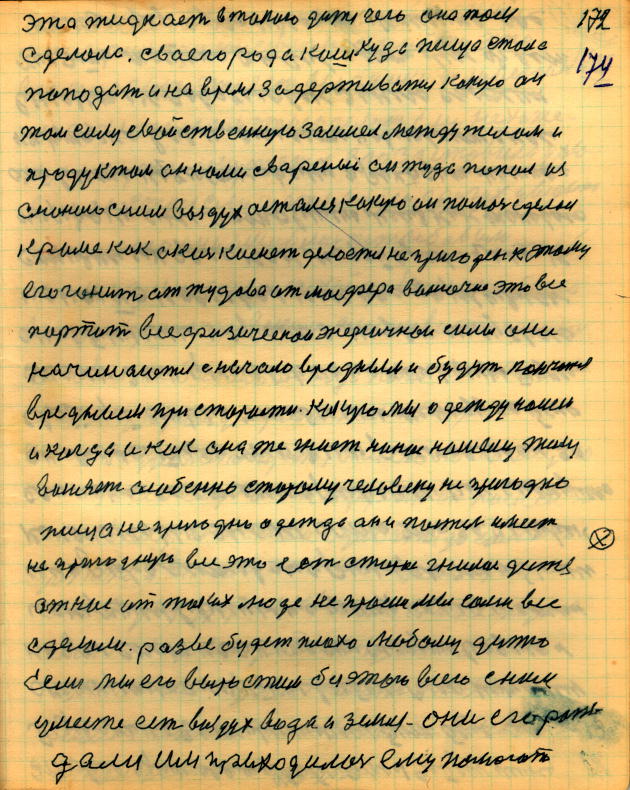 172
174
эта жидкает в такого дитя чего она там
сделала. своего рода кашку да пища стала
попадат и на время задерживатся какую он
там силу свойственную заимел между телом и
продуктам он нами сварены он туда попал из
смоного сним воздух остался какую он помощ сделал
кроме как окис киснет делается не пригоден к этому
его гонит оттудова атмосфера вонючие это все
портит все физической энергичной силы они
начинаются сначало вредным и будут кончатся
вредным при старости. какую мы одежду носим
и когда и как она же гниет на нашему телу
воняет особенно старому человеку не пригодно
пища не пригодно одежда он и постел имеет
не пригодную все это ест старое гнилое дитя
от нас от таких люде не просило мы сами все
сделали. разве будет плохо любому дитю
Если мы его вырастим без этого всего с ним
уместе ест воздух вода и земля - они его рож
дали им приходилос ему помогать